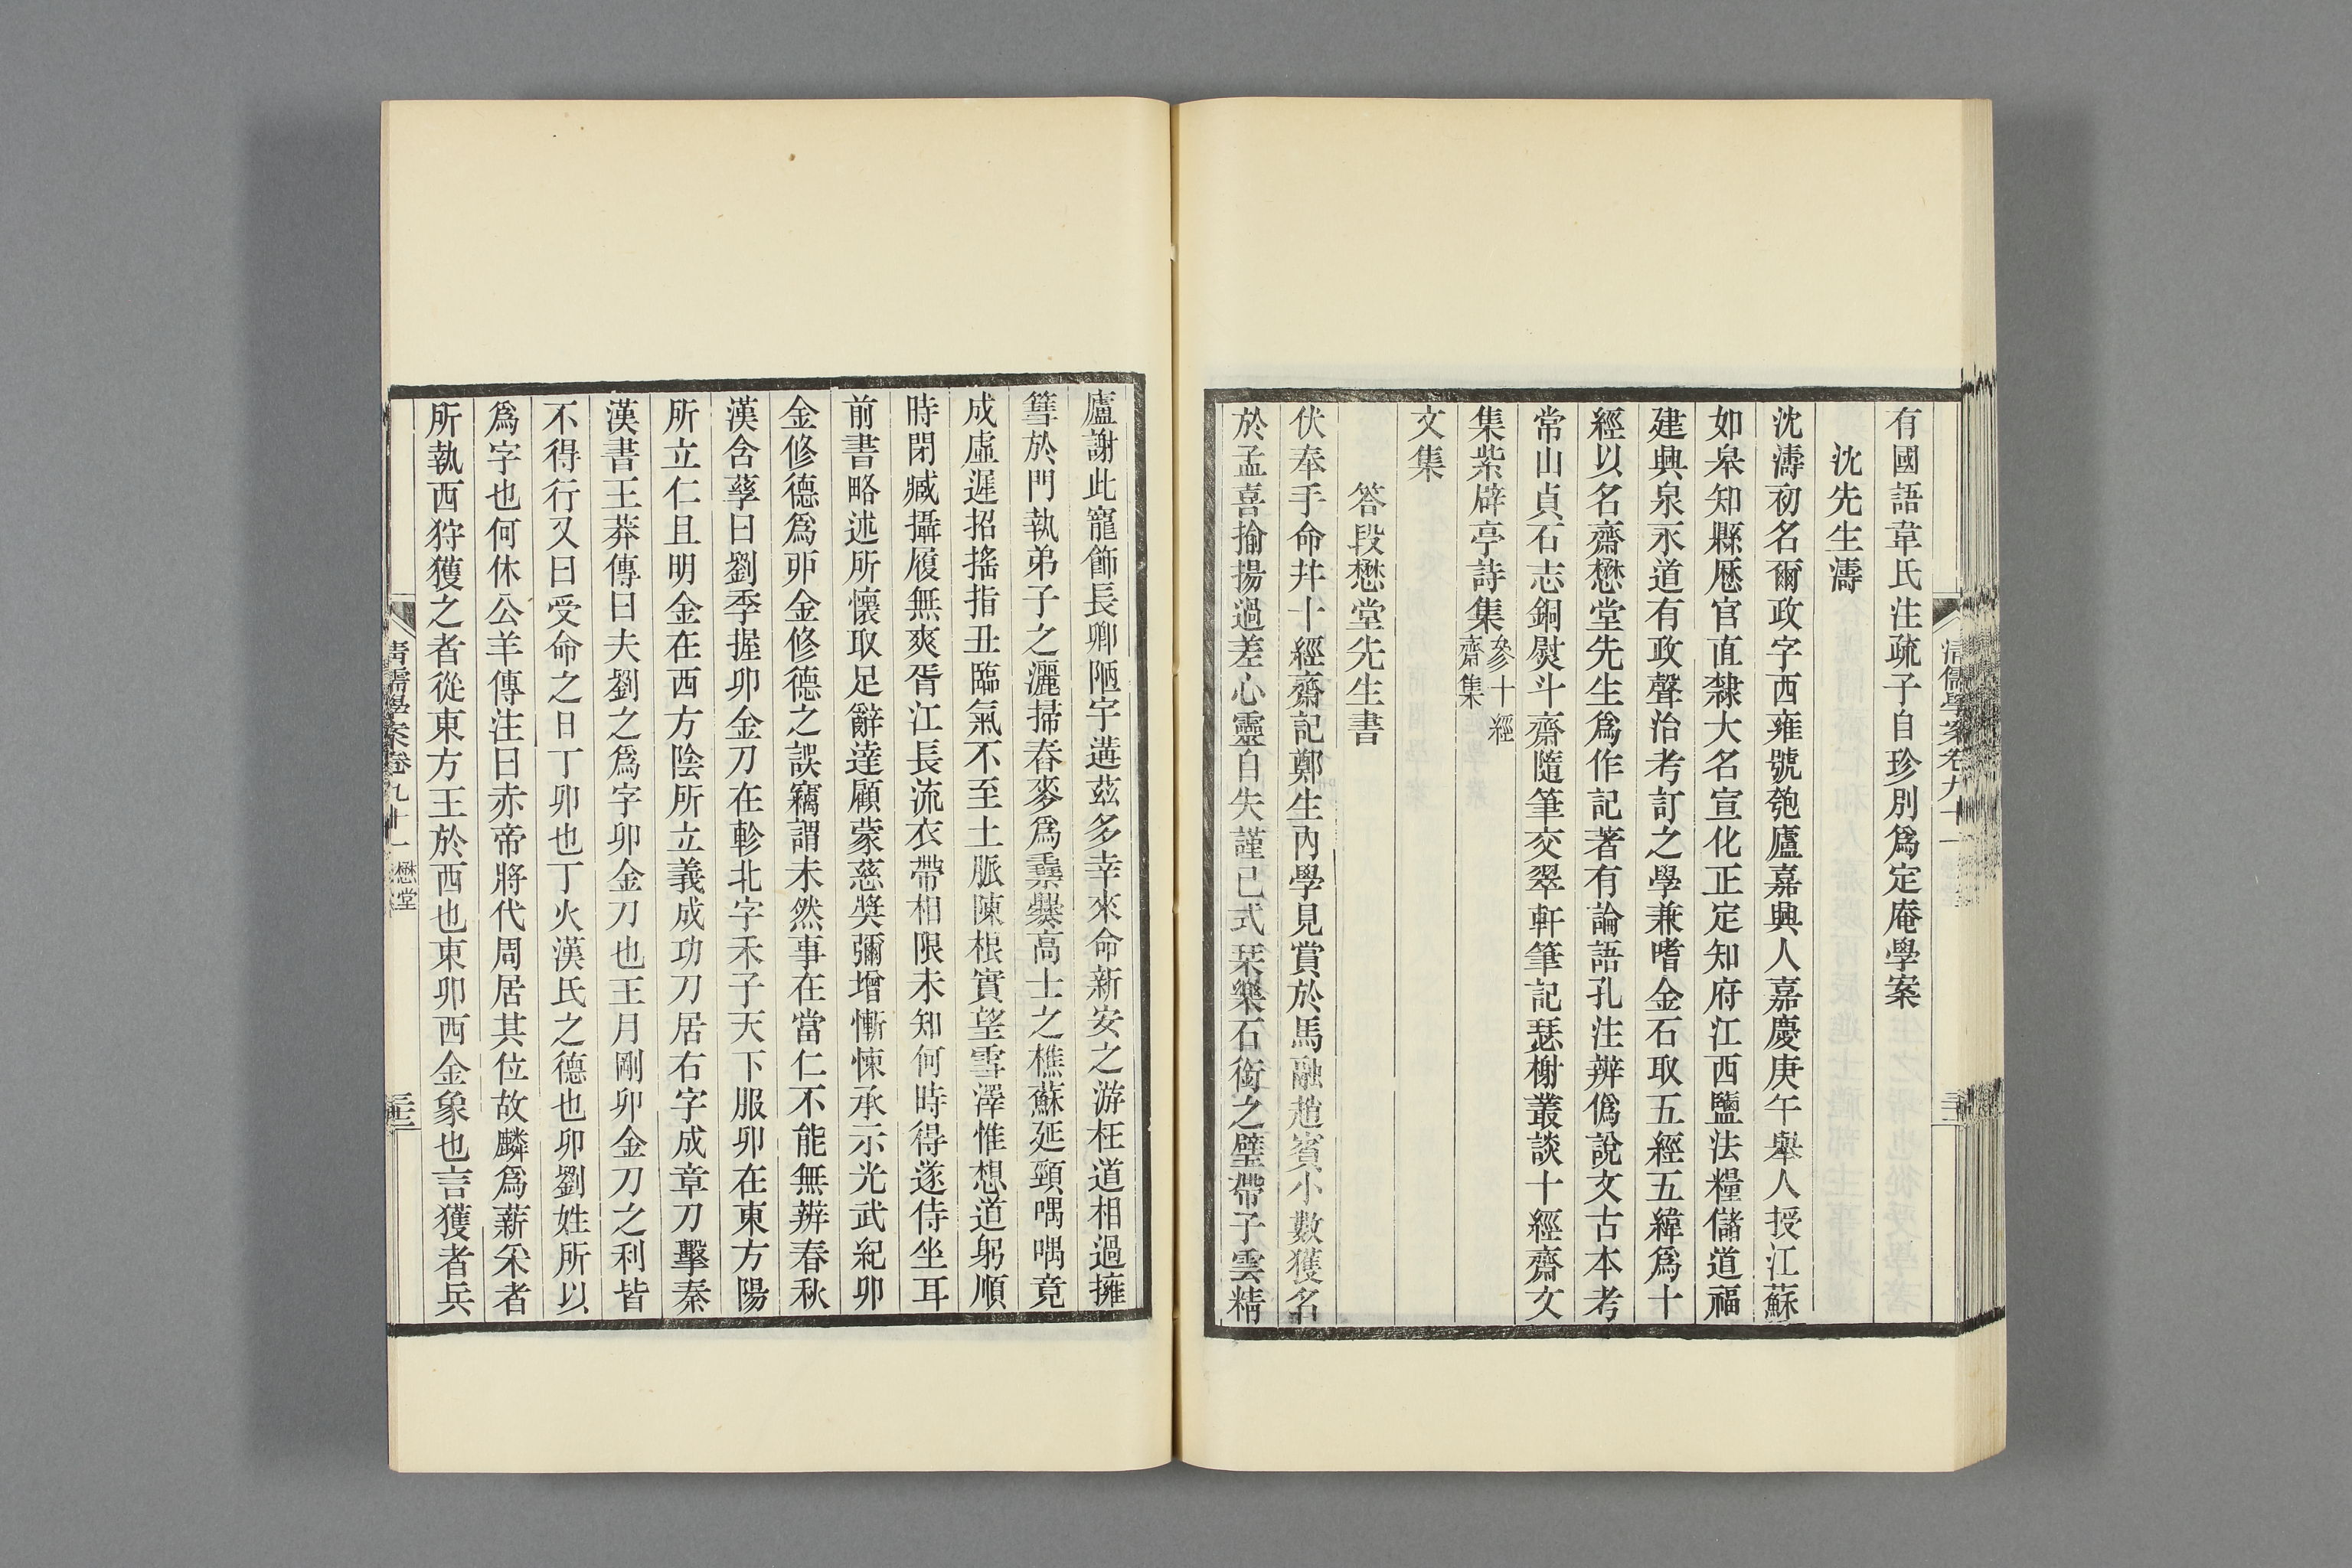 有國語韋氏注疏子自珍別爲定庵學案
沈先生濤
沈濤初名爾政字西雍號匏廬嘉興人嘉慶庚午舉人授江蘇
如皋知縣歷官直隸大名宣化正定知府江西鹽法糧儲道福
建興泉永道有政聲治考訂之學兼嗜金石取五經五緯爲十
經以名齋懋堂先生爲作記著有論語孔注辨僞說文古本考
常山貞石志銅熨斗齋隨筆交翠軒筆記瑟榭叢談十經齋文
集紫辟亭詩集參十經齋集
文集
答段懋堂先生書
伏奉手命幷十經齋記鄭生內學見賞於馬融趙賓小數獲名
於孟喜揄揚過差心靈自失謹已式栞樂石銜之璧帶子雲精
廬謝此寵飾長卿陋宇遘茲多幸來命新安之游枉道相過擁
篲於門執弟子之灑掃舂麥爲䵄爨高士之樵蘇延頸喁喁竟
成虛遲招搖指丑臨氣不至土脈陳根實望雪澤惟想道躬順
時閉臧攝履無爽胥江長流衣帶相限未知何時得遂侍坐耳
前書略述所懷取足辭達顧蒙慈奬彌增慚悚承示光武紀卯
金修德爲丣金修德之誤竊謂未然事在當仁不能無辨春秋
漢含孳曰劉季握卯金刀在軫北字禾子天下服卯在東方陽
所立仁且明金在西方陰所立義成功刀居右字成章刀擊秦
漢書王莽傳曰夫劉之爲字卯金刀也正月剛卯金刀之利皆
不得行又曰受命之日丁卯也丁火漢氏之德也卯劉姓所以
爲字也何休公羊傳注曰赤帝將代周居其位故麟爲薪采者
所執西狩獲之者從東方王於西也東卯西金象也言獲者兵
清儒學案卷九十一 懋堂